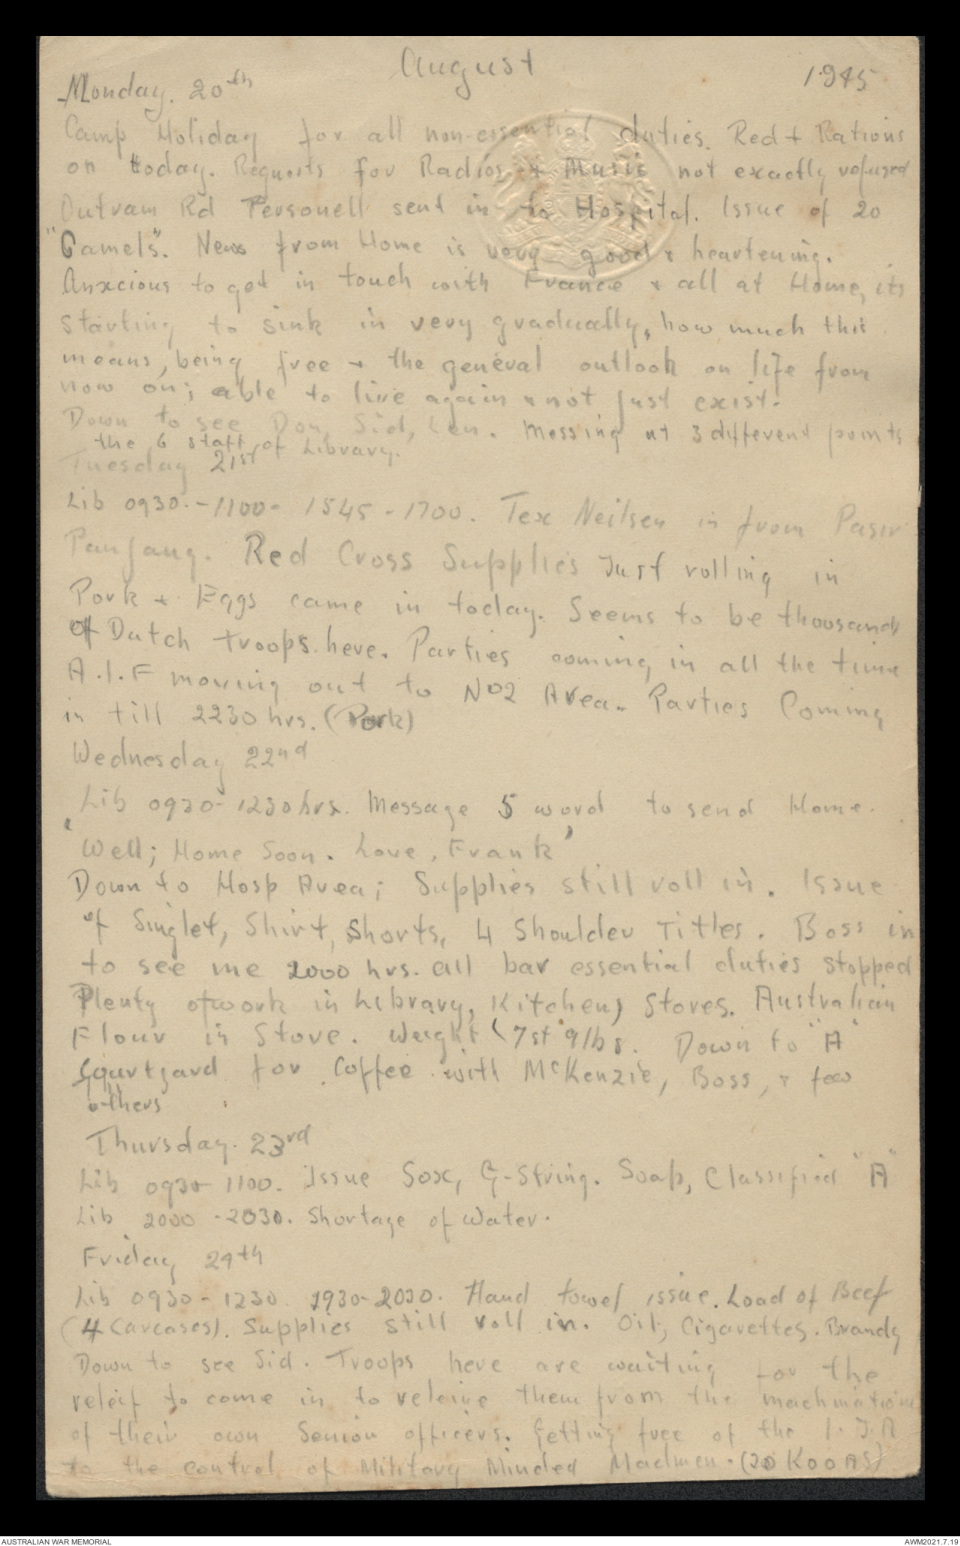 August
Monday. 20th 1945
Camp Holiday for all non-essential duties. Red + Rations
on today. Requests for Radios + Music not exactly refused
Outram Rd Personell sent in to Hospital. Issue of 20
"Camels". News from Home is very good & heartening.
Anxcious to get in touch with France & all at Home, its
starting to sink in very gradually, how much this
means, being free & the general outlook on life from
now on; able to live again & not just exist.
Down to see Don, Sid, Len. Messing at 3 different points
the 6 staff of Library.
Tuesday 21st
Lib 0930.-1100- 1545-1700. Tex Neilsen in from Pasir
Panjang. Red Cross Supplies Just rolling in
Pork + Eggs came in today. Seems to be thousands
of Dutch troops here. Parties coming in all the time
A.I.F moving out to No2 Area. Parties Coming
in till 2230 hrs. (Pork)
Wednesday 22nd
Lib 0930-1230 hrs. Message 5 word to send Home.
'Well; Home Soon. Love, Frank'
Down to Hosp Area; Supplies still roll in. Issue
of Singlet, Shirt, Shorts, 4 Shoulder Titles. Boss in
to see me 2000 hrs. all bar essential duties stopped
Plenty ofwork in Library, Kitchen, Stores. Australian
Flour in Store. Weight 7st 9lbs. Down to "A"
Courtyard for Coffee with McKenzie, Boss, & few
others
Thursday. 23rd
Lib 0930-1100. Issue Sox, G-String. Soap, Classified "A"
Lib 2000-2030. Shortage of Water.
Friday 24th
Lib 0930-1230. 1930-2030. Hand towel issue. Load of Beef
(4 Carcases). Supplies still roll in. Oil, Cigarettes. Brandy
Down to see Sid. Troops here are waiting for the
releif to come in to releive them from the machinations
of their own Senior officers. Getting free of the I.J.A
to the control of Military Minded Madmen. (20 KOOAS)
AUSTRALIAN WAR MEMORIAL AWM2021.7.19